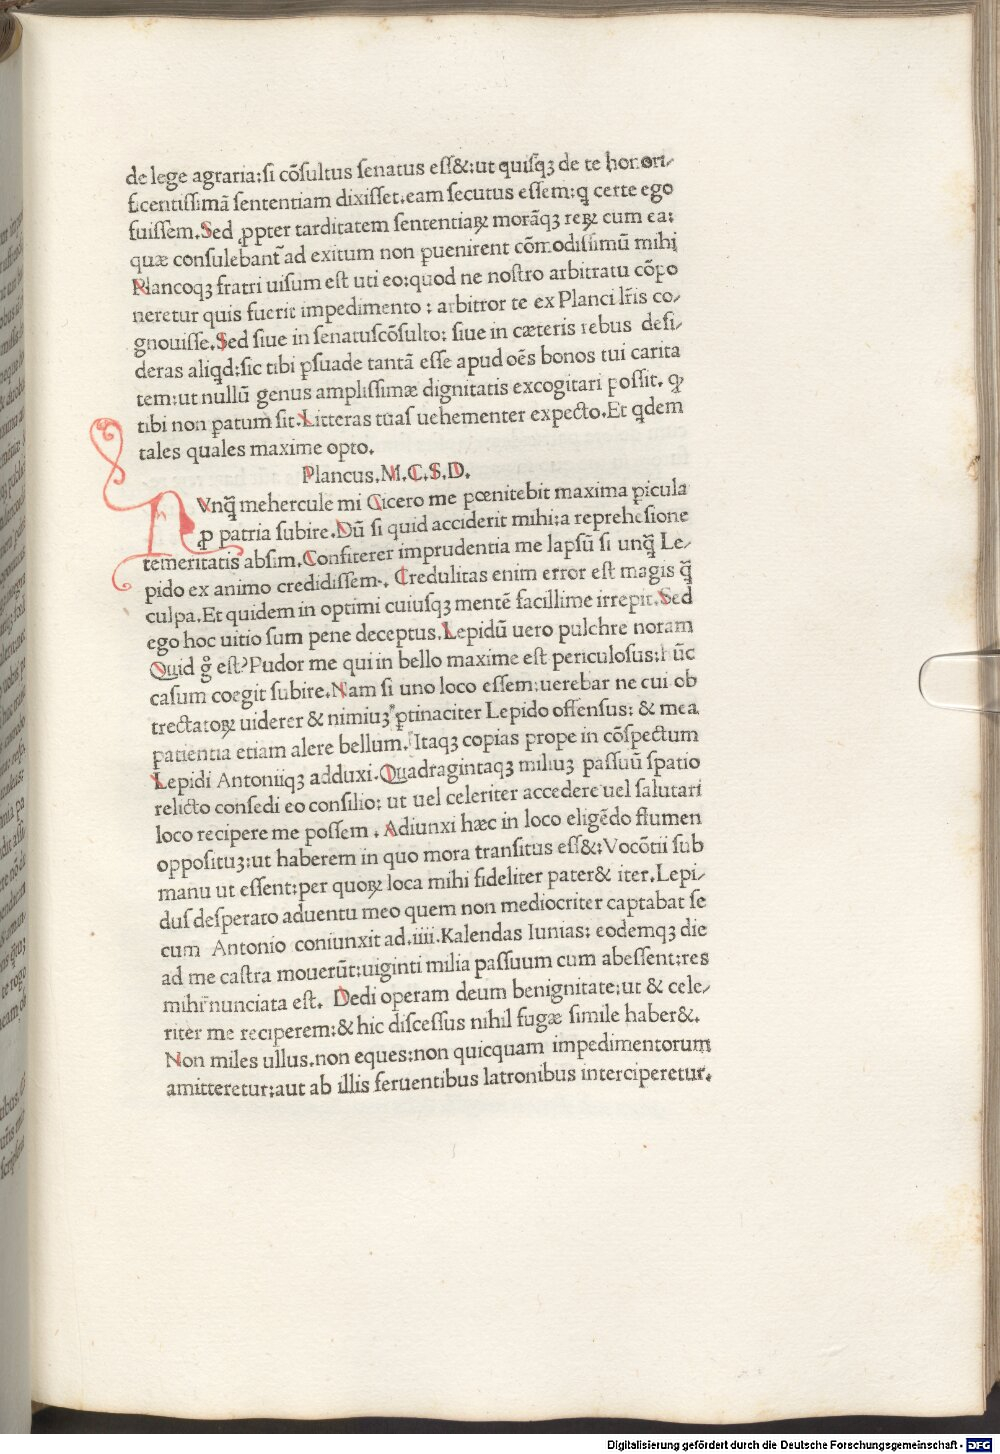 de lege agraria:si cõsultus senatus ess&:ut quisqꝫ de te honori⸗
ficentissimã sententiam dixisset.eam secutus essem:q̨ certe ego
fuissem.Sed ꝓpter tarditatem sententiaꝝ morãqꝫ reꝝ cum ea:
quæ consulebant̃ ad exitum non ꝑuenirent cõmodissimũ mihi
Plancoqꝫ fratri uisum est uti eo:quod ne nostro arbitratu cõpo
neretur quis fuerit impedimento : arbitror te ex Planci lr̃is co⸗
gnouisse.Sed siue in senatuscõsulto: siue in cæteris rebus desi⸗
deras aliqd:sic tibi ꝑsuade tantã esse apud oẽs bonos tui carita
tem:ut nullũ genus amplissimæ dignitatis excogitari possit. ꝙ
tibi non ꝑatum sit.Litteras tuas uehementer expecto.Et qdem
tales quales maxime opto.
Plancus.M.C.S.D.
N Vnq̃ mehercule mi Cicero me pœnitebit maxima ꝑicula
ꝓ patria subire.Dũ si quid acciderit mihi:a reprehẽsione
temeritatis absim.Confiterer imprudentia me lapsũ si unq̃ Le⸗
pido ex animo credidissem. Credulitas enim error est magis q̃
culpa.Et quidem in optimi cuiusqꝫ mentẽ facillime irrepit.Sed
ego hoc uitio sum pene deceptus.Lepidũ uero pulchre noram
Quid g̊ est?Pudor me qui in bello maxime est periculosus:hũc
casum coegit subire.Nam si uno loco essem:uerebar ne cui ob
trectatoꝝ uiderer & nimiuꝫ ꝑtinaciter Lepido offensus: & mea
patientia etiam alere bellum. Itaqꝫ copias prope in cõspectum
Lepidi Antoniiqꝫ adduxi.Quadragintaqꝫ miliuꝫ passuũ spatio
relicto consedi eo consilio: ut uel celeriter accedere uel salutari
loco recipere me possem . Adiunxi hæc in loco eligẽdo flumen
opposituꝫ:ut haberem in quo mora transitus ess&:Vocõtii sub
manu ut essent:per quoꝝ loca mihi fideliter pater& iter.Lepi⸗
dus desperato aduentu meo quem non mediocriter captabat se
cum Antonio coniunxit ad.iiii.Kalendas Iunias: eodemqꝫ die
ad me castra mouerũt:uiginti milia passuum cum abessent:res
mihi nunciata est. Dedi operam deum benignitate:ut & cele⸗
riter me reciperem:& hic discessus nihil fugæ simile haber&.
Non miles ullus.non eques:non quicquam impedimentorum
amitteretur:aut ab illis feruentibus latronibus interciperetur.
Digitalisierung gefördert durch die Deutsche Forschungsgemeinschaft - DFG